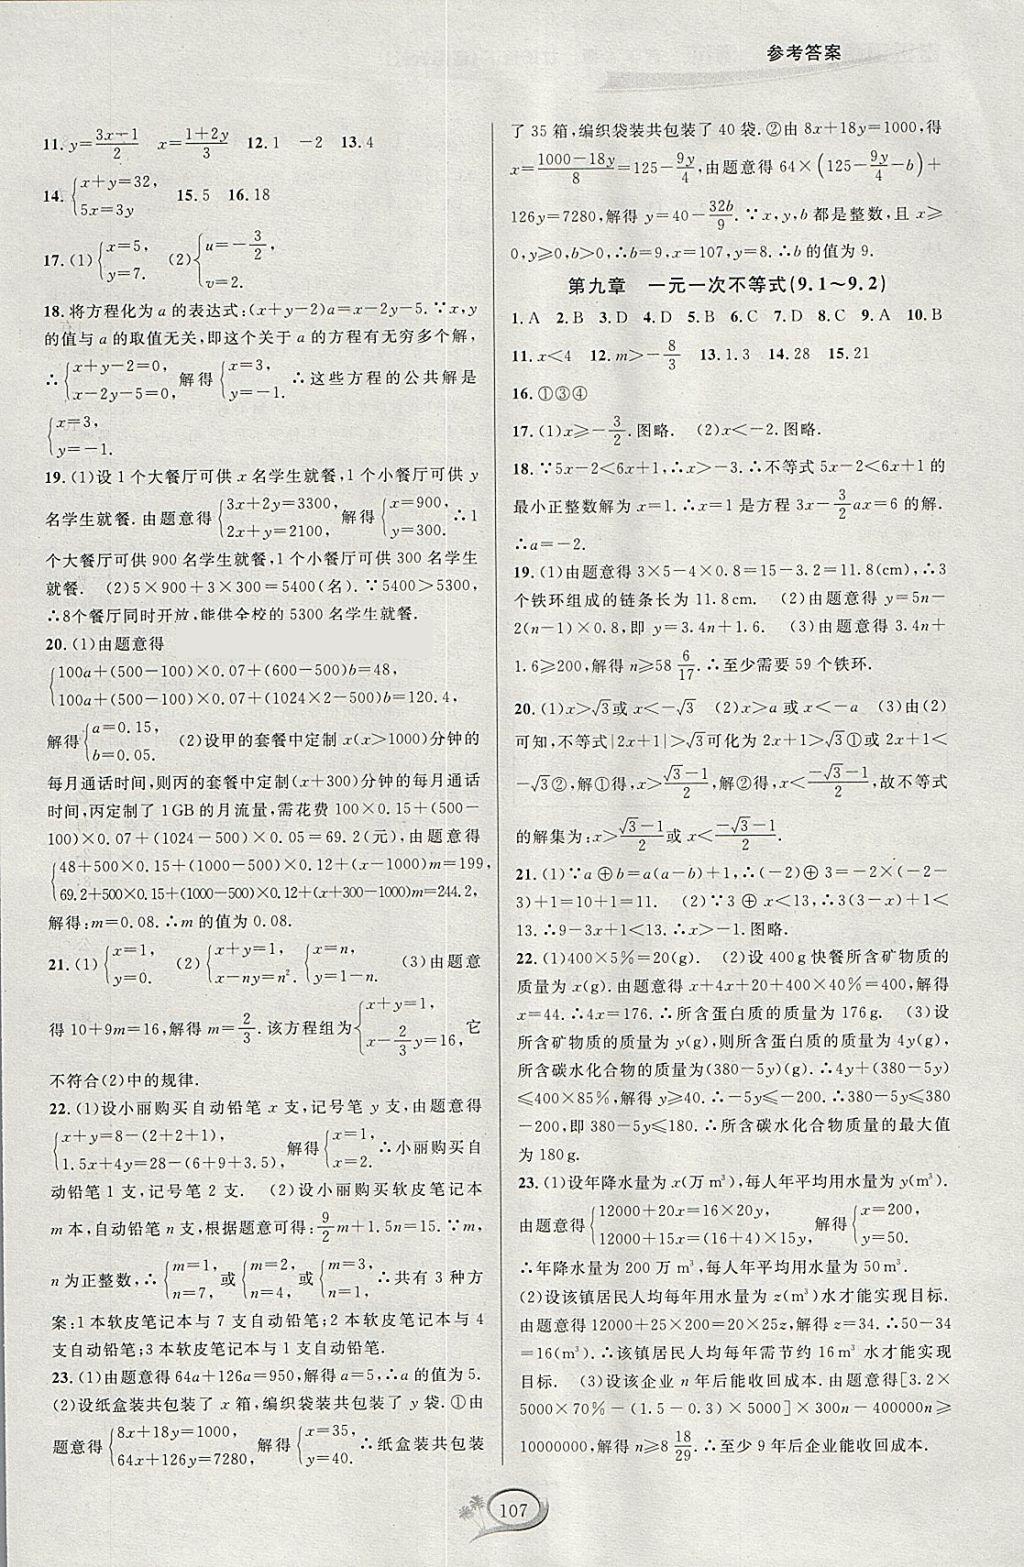 参考答案
11. y=(3x-1)/2  x=(1+2y)/3  12. 1  -2  13. 4
14. {x+y=32, 5x=3y  15. 5  16. 18
17. (1){x=5, y=7.  (2){u=-3/2, v=2.
18. 将方程化为 a 的表达式:(x+y-2)a=x-2y-5. ∵x,y
的值与 a 的取值无关,即这个关于 a 的方程有无穷多个解,
∴{x+y-2=0, x-2y-5=0, 解得{x=3, y=-1. ∴这些方程的公共解是
{x=3, y=-1.
19. (1)设 1 个大餐厅可供 x 名学生就餐,1 个小餐厅可供 y
名学生就餐. 由题意得{3x+2y=3300, 2x+y=2100, 解得{x=900, y=300. ∴1
个大餐厅可供 900 名学生就餐,1 个小餐厅可供 300 名学生
就餐.  (2)5×900+3×300=5400(名). ∵5400>5300,
∴8个餐厅同时开放,能供全校的 5300 名学生就餐.
20. (1)由题意得
{100a+(500-100)×0.07+(600-500)b=48,
100a+(500-100)×0.07+(1024×2-500)b=120.4,
解得{a=0.15, b=0.05.  (2)设甲的套餐中定制 x(x>1000)分钟的
每月通话时间,则丙的套餐中定制(x+300)分钟的每月通话
时间,丙定制了 1GB 的月流量,需花费 100×0.15+(500-
100)×0.07+(1024-500)×0.05=69.2(元),由题意得
{48+500×0.15+(1000-500)×0.12+(x-1000)m=199,
69.2+500×0.15+(1000-500)×0.12+(x+300-1000)m=244.2,
解得:m=0.08. ∴m 的值为 0.08.
21. (1){x=1, y=0.  (2){x+y=1, x-ny=n². {x=n, y=1-n.  (3)由题意
得 10+9m=16,解得 m=2/3. 该方程组为{x+y=1, x-2/3y=16, 它
不符合(2)中的规律.
22. (1)设小丽购买自动铅笔 x 支,记号笔 y 支,由题意得
{x+y=8-(2+2+1), 1.5x+4y=28-(6+9+3.5), 解得{x=1, x=2. ∴小丽购买自
动铅笔 1 支,记号笔 2 支.  (2)设小丽购买软皮笔记本
m 本,自动铅笔 n 支,根据题意可得:9/2m+1.5n=15. ∵m,
n 为正整数,∴{m=1, n=7, 或{m=2, n=4, 或{m=3, n=1, ∴共有 3 种方
案:1 本软皮笔记本与 7 支自动铅笔;2 本软皮笔记本与 4
支自动铅笔;3 本软皮笔记本与 1 支自动铅笔.
23. (1)由题意得 64a+126a=950,解得 a=5,∴a 的值为 5.
(2)设纸盒装共包装了 x 箱,编织袋装共包装了 y 袋. ①由
题意得{8x+18y=1000, 64x+126y=7280, 解得{x=35, y=40. ∴纸盒装共包装
了 35 箱,编织袋装共包装了 40 袋. ②由 8x+18y=1000,得
x=(1000-18y)/8=125-9y/4,由题意得 64×(125-9y/4-b)+
126y=7280,解得 y=40-32b/9. ∵x,y,b 都是整数,且 x⩾
0,y⩾0,b>0,∴b=9,x=107,y=8. ∴b 的值为 9.
第九章 一元一次不等式(9.1~9.2)
1. A  2. B  3. D  4. D  5. B  6. C  7. D  8. C  9. A  10. B
11. x<4  12. m>-8/3  13. 1,3  14. 28  15. 21
16. ①③④
17. (1)x⩾-3/2. 图略.  (2)x<-2. 图略.
18. ∵5x-2<6x+1,∴x>-3. ∴不等式 5x-2<6x+1 的
最小正整数解为 x=1. ∴x=1 是方程 3x-3/2ax=6 的解.
∴a=-2.
19. (1)由题意得 3×5-4×0.8=15-3.2=11.8(cm),∴3
个铁环组成的链条长为 11.8cm.  (2)由题意得 y=5n-
2(n-1)×0.8,即 y=3.4n+1.6.  (3)由题意得 3.4n+
1.6⩾200,解得 n⩾58 6/17. ∴至少需要 59 个铁环.
20. (1)x>√3或 x<-√3  (2)x>a 或 x<-a  (3)由(2)
可知,不等式|2x+1|>√3可化为 2x+1>√3①或 2x+1<
-√3②,解①得,x>(√3-1)/2,解②得,x<(-√3-1)/2,故不等式
的解集为:x>(√3-1)/2或 x<(-√3-1)/2.
21. (1)∵a⊕b=a(a-b)+1,∴(-2)⊕3=-2×(-2-
3)+1=10+1=11.  (2)∵3⊕x<13,∴3(3-x)+1<
13. ∴9-3x+1<13. ∴x>-1. 图略.
22. (1)400×5%=20(g).  (2)设 400g 快餐所含矿物质的
质量为 x(g). 由题意得 x+4x+20+400×40%=400,解得
x=44. ∴4x=176. ∴所含蛋白质的质量为 176g.  (3)设
所含矿物质的质量为 y(g),则所含蛋白质的质量为 4y(g),
所含碳水化合物的质量为(380-5y)(g). ∴4y+(380-5y)
⩽400×85%,解得 y⩾40. ∴-5y⩽-200. ∴380-5y⩽380
-200,即 380-5y⩽180. ∴所含碳水化合物质量的最大值
为 180g.
23. (1)设年降水量为 x(万 m³),每人年平均用水量为 y(m³).
由题意得{12000+20x=16×20y, 12000+15x=(16+4)×15y, 解得{x=200, y=50.
∴年降水量为 200 万 m³,每人年平均用水量为 50m³.
(2)设该镇居民人均每年用水量为 z(m³)水才能实现目标.
由题意得 12000+25×200=20×25z,解得 z=34. ∴50-34
=16(m³). ∴该镇居民人均每年需节约 16m³ 水才能实现
目标.  (3)设该企业 n 年后能收回成本. 由题意得[3.2×
5000×70%-(1.5-0.3)×5000]×300n-400000n⩾
10000000,解得 n⩾8 18/29. ∴至少 9 年后企业能收回成本.
107